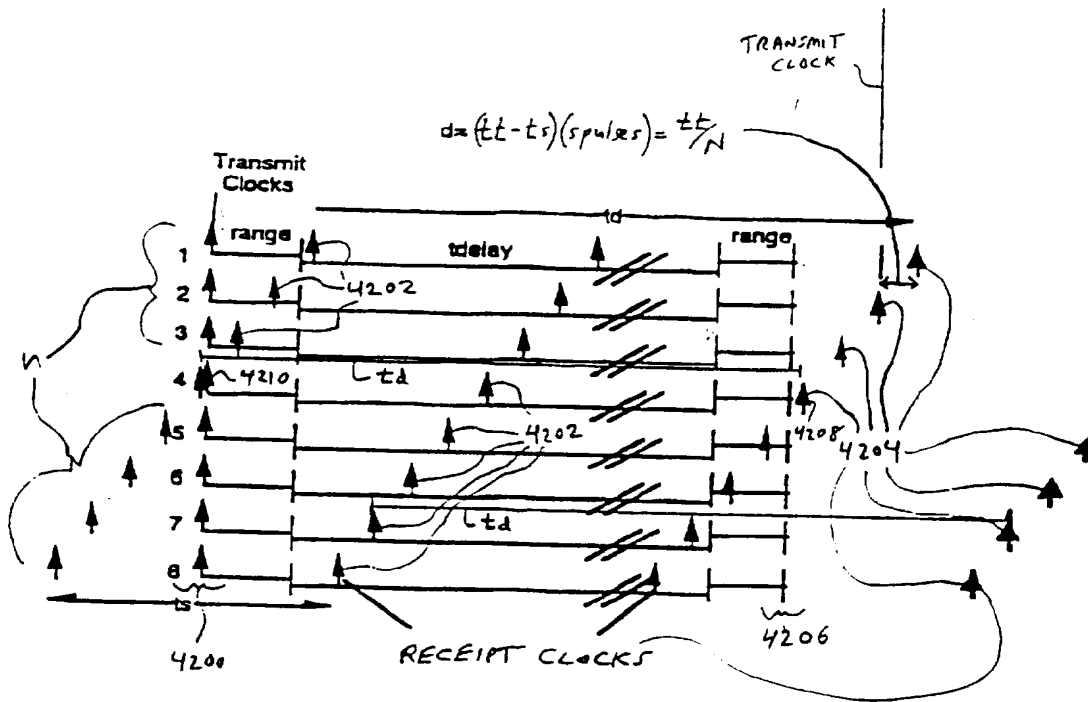 TRANSMIT
CLOCK
d=(tt-ts)(spulses)=tt/N
Transmit
Clocks
td
1 range tdelay range
2 4202
3
td
4 4210
4208
n
5 4202 4204
6
7
td
8
ts
4200
RECEIPT CLOCKS
4206